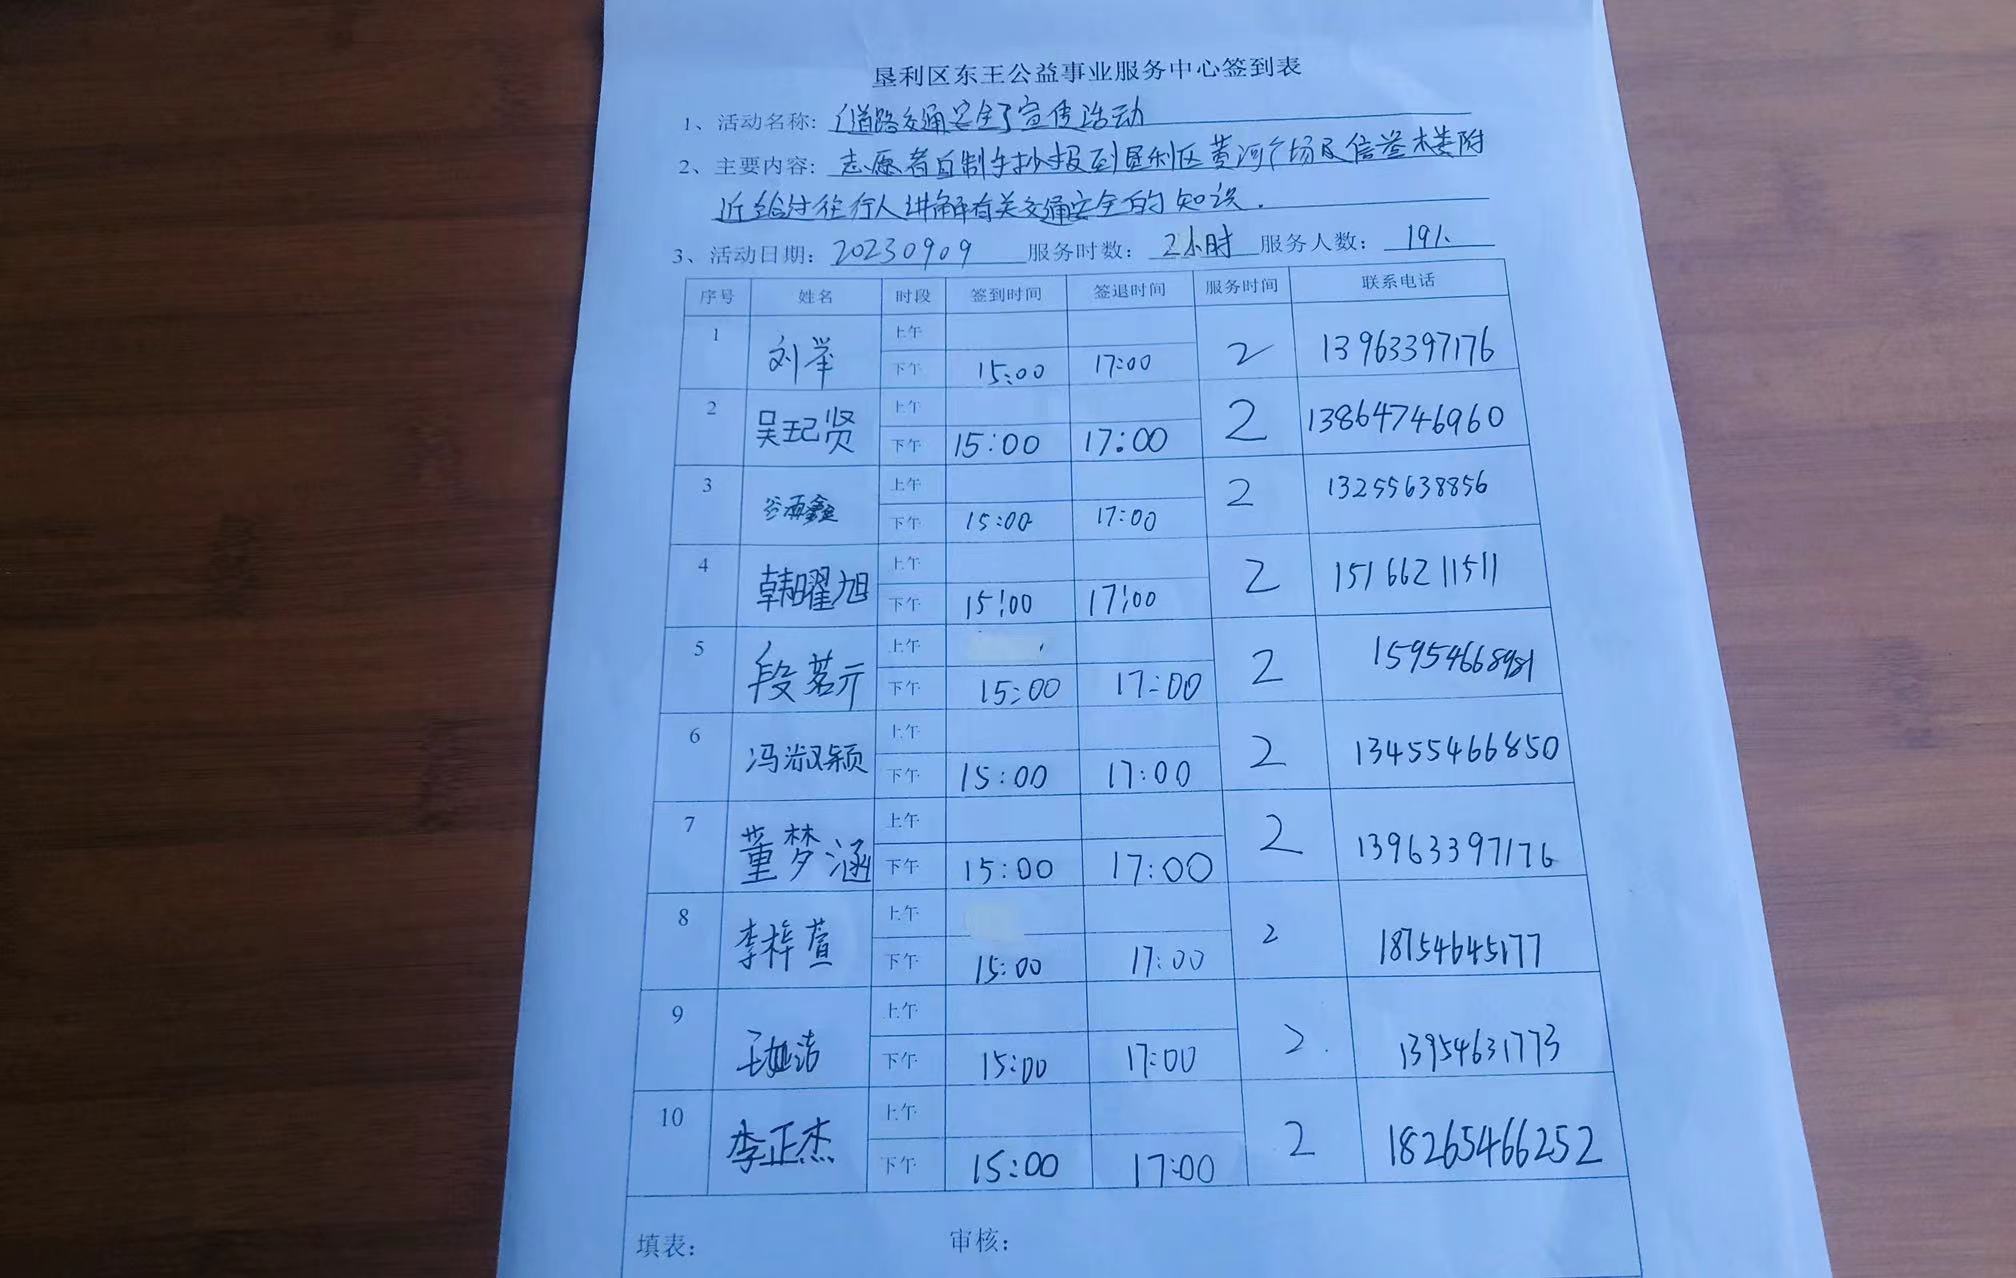 垦利区东王公益事业服务中心签到表
1、活动名称: 道路交通安全宣传活动
2、主要内容: 志愿者自制手抄报到垦利区黄河广场及信誉楼附
近给过往行人讲解有关交通安全的知识.
3、活动日期: 20230909 服务时数: 2小时 服务人数: 19人
序号 姓名 时段 签到时间 签退时间 服务时间 联系电话
1 刘举 上午
下午 15:00 17:00 2 13963397176
2 吴玘贤 上午
下午 15:00 17:00 2 13864746960
3 谷雨鑫 上午
下午 15:00 17:00 2 13255638856
4 韩曜旭 上午
下午 15:00 17:00 2 15166211511
5 段茗亓 上午
下午 15:00 17:00 2 15954668981
6 冯淑颖 上午
下午 15:00 17:00 2 13455466850
7 董梦涵 上午
下午 15:00 17:00 2 13963397176
8 李梓萱 上午
下午 15:00 17:00 2 18754645177
9 上午
下午 15:00 17:00 2 13954631773
10 李正杰 上午
下午 15:00 17:00 2 18265466252
填表: 审核: